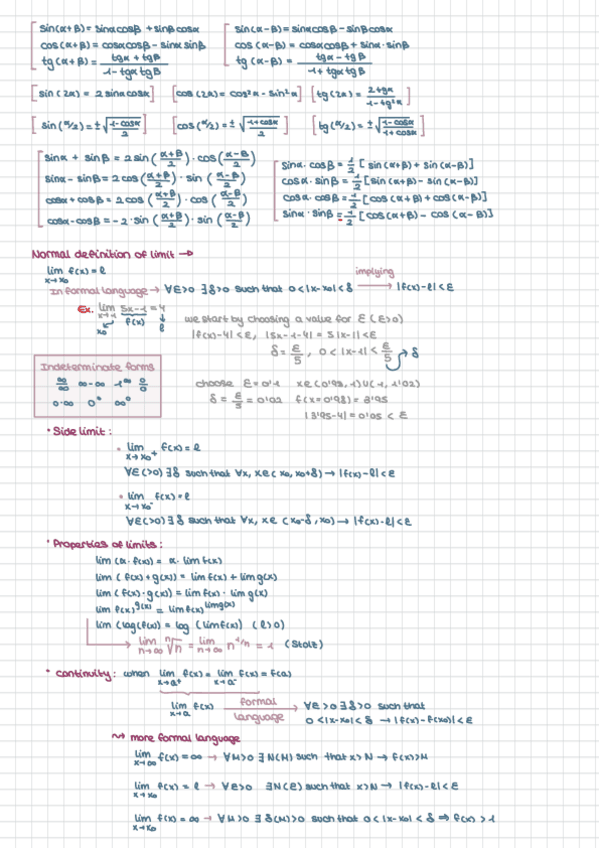 sin(α+β) = sinα cosβ + sinβ cosα
sin(α-β) = sinα cosβ - sinβ cosα
cos(α+β) = cosα cosβ - sinα sinβ
cos(α-β) = cosα cosβ + sinα·sinβ
tg(α+β) = (tgα + tgβ)/(1 - tgα tgβ)
tg(α-β) = (tgα - tgβ)/(1 + tgα tgβ)
sin(2α) = 2 sinα cosα
cos(2α) = cos²α - sin²α
tg(2α) = 2tgα/(1 - tg²α)
sin(α/2) = ±√((1-cosα)/2)
cos(α/2) = ±√((1+cosα)/2)
tg(α/2) = ±√((1-cosα)/(1+cosα))
sinα + sinβ = 2 sin((α+β)/2)·cos((α-β)/2)
sinα - sinβ = 2 cos((α+β)/2)·sin((α-β)/2)
cosα + cosβ = 2 cos((α+β)/2)·cos((α-β)/2)
cosα - cosβ = -2·sin((α+β)/2)·sin((α-β)/2)
sinα·cosβ = 1/2 [sin(α+β) + sin(α-β)]
cosα·sinβ = 1/2 [sin(α+β) - sin(α-β)]
cosα·cosβ = 1/2 [cos(α+β) + cos(α-β)]
sinα·sinβ = -1/2 [cos(α+β) - cos(α-β)]
Normal definition of limit →
lim f(x) = l
x→x₀
In formal language → ∀ε>0 ∃δ>0 such that 0<|x-x₀|<δ implying → |f(x)-l|<ε
Ex. lim 5x-1 = 4
x→1
x₀ f(x) l
we start by choosing a value for ε (ε>0)
|f(x)-4|<ε, |5x-1-4| = 5|x-1|<ε
δ = ε/5, 0<|x-1|<ε/5 δ
Indeterminate forms
∞/∞ ∞-∞ 1^∞ 0/0
0·∞ 0⁰ ∞⁰
choose ε=0'1 x∈(0'98,1)∪(1,1'02)
δ = ε/5 = 0'02 f(x=0'98) = 3'95
|3'95-4| = 0'05 < ε
• Side limit:
• lim f(x) = l
x→x₀⁺
∀ε(>0) ∃δ such that ∀x, x∈(x₀, x₀+δ) → |f(x)-l|<ε
• lim f(x) = l
x→x₀⁻
∀ε(>0) ∃δ such that ∀x, x∈(x₀-δ, x₀) → |f(x)-l|<ε
• Properties of limits:
lim (α·f(x)) = α·lim f(x)
lim (f(x)+g(x)) = lim f(x) + lim g(x)
lim (f(x)·g(x)) = lim f(x)·lim g(x)
lim f(x)^g(x) = lim f(x)^lim g(x)
lim (log(f(x)) = log (lim f(x)) (l>0)
lim ⁿ√n = lim n^(1/n) = 1 (Stolz)
n→∞ n→∞
• Continuity: when lim f(x) = lim f(x) = f(a)
x→a⁺ x→a⁻
lim f(x) formal language → ∀ε>0 ∃δ>0 such that
x→a
0<|x-x₀|<δ → |f(x)-f(x₀)|<ε
↝ more formal language
lim f(x) = ∞ → ∀M>0 ∃N(M) such that x>N → f(x)>M
x→∞
lim f(x) = l → ∀ε>0 ∃N(ε) such that x>N → |f(x)-l|<ε
x→x₀
lim f(x) = ∞ → ∀M>0 ∃δ(M)>0 such that 0<|x-x₀|<δ ⇒ f(x)>1
x→x₀